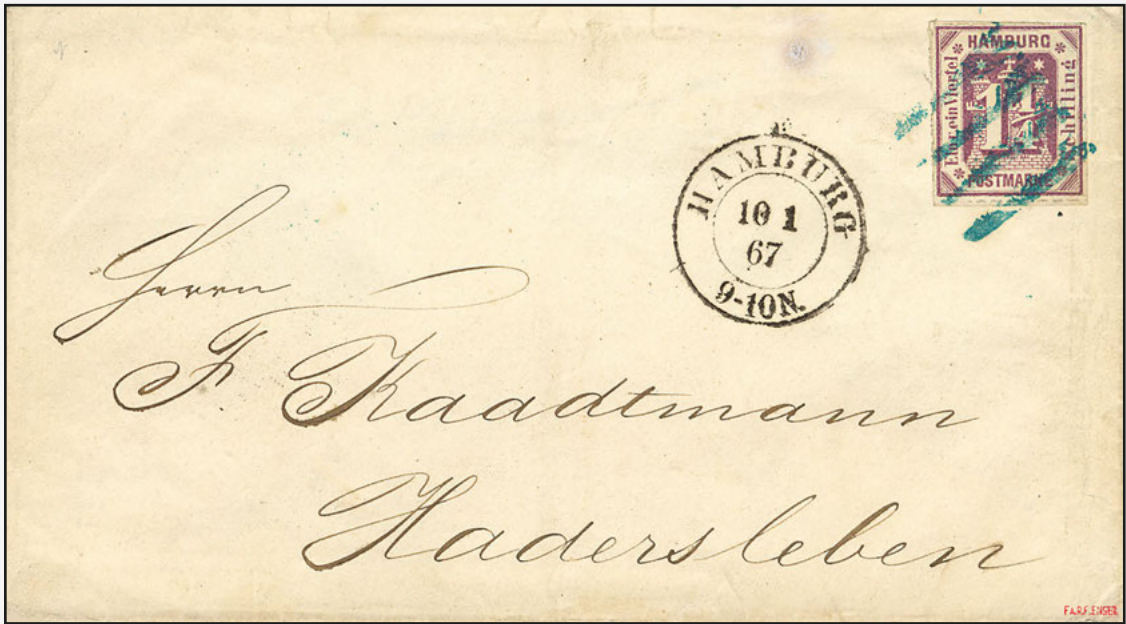 HAMBURG
Ein ein Viertel
Schilling
1¼
POSTMARKE
HAMBURG
10 1
67
9-10N.
Herrn
F. Kaadtmann
Hadersleben